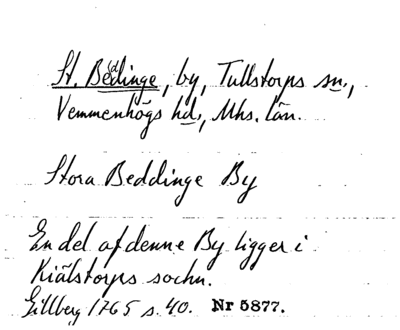 St. Beddinge, by, Tullstorps sn.,
Vemmenhögs hd., Mhs. län.
Stora Beddinge By
En del af denne By ligger i
Kiälstorps sochn.
Gillberg 1765 s. 40. Nr 5877.